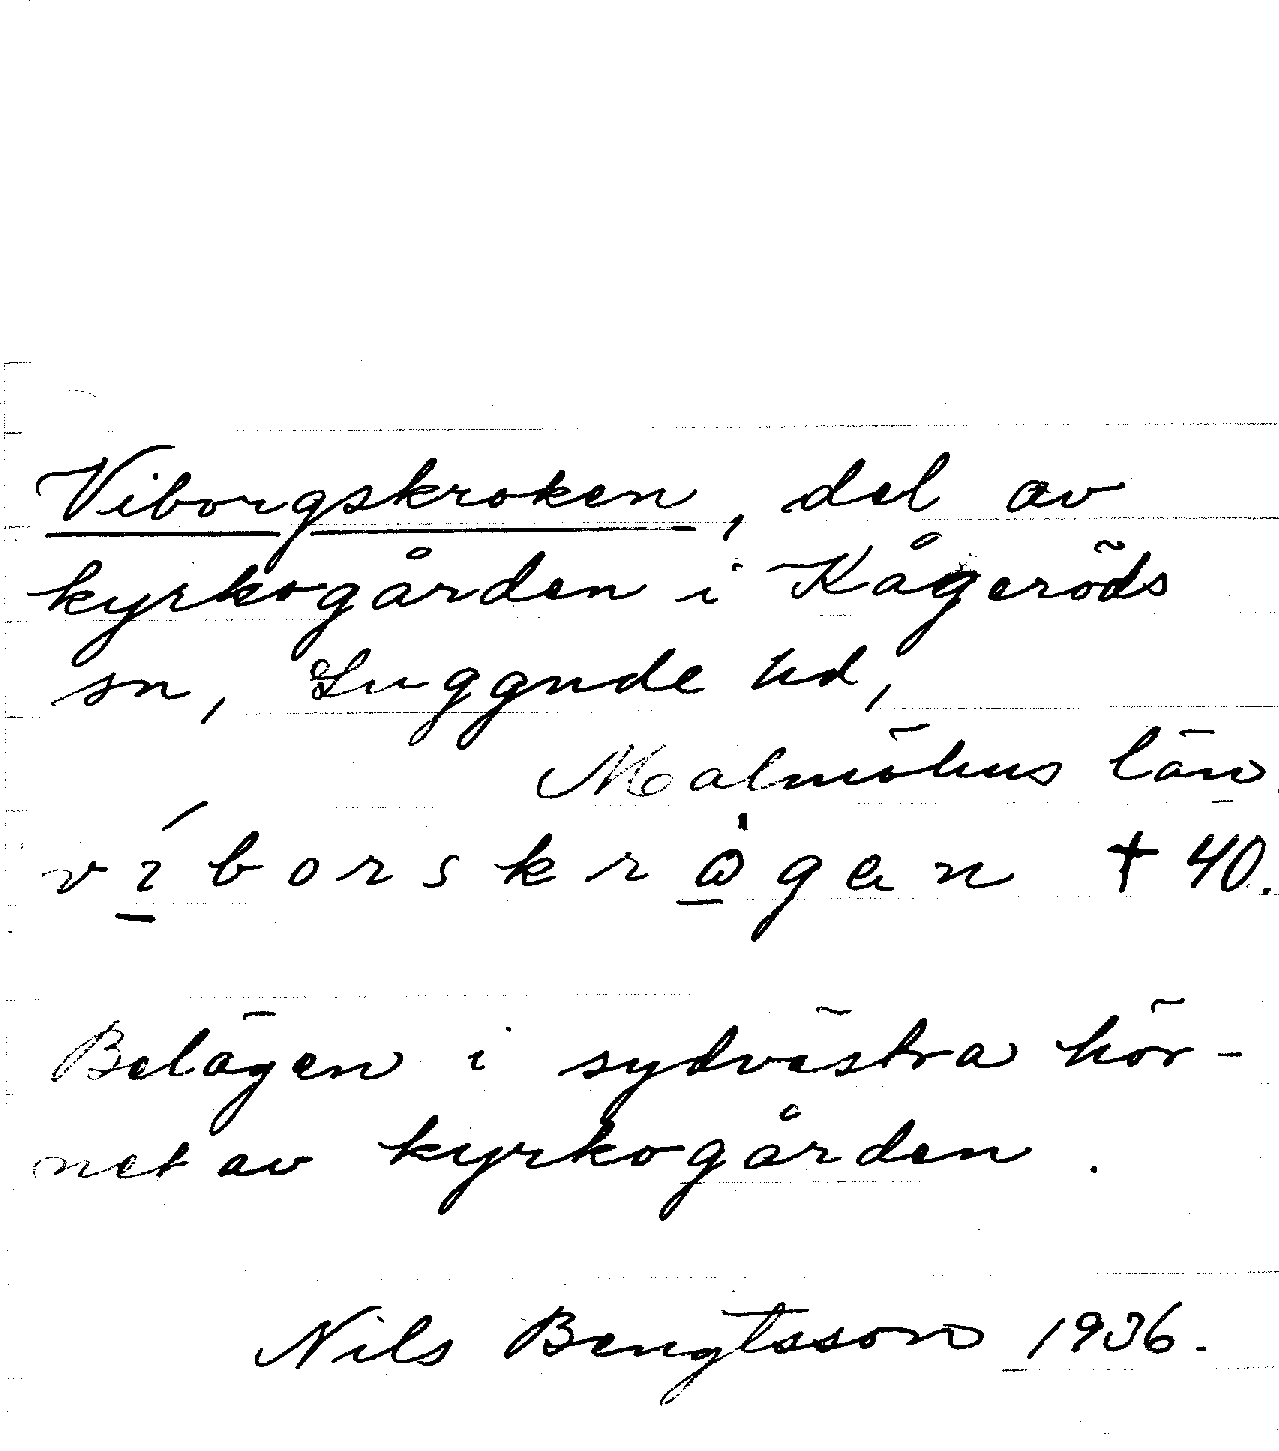 Viborgskroken, del av
kyrkogården i Kågeröds
sn, Luggude hd,
Malmöhus län.
víborskrɷ̀gan † 40.
Belägen i sydvästra hör-
net av kyrkogården.
Nils Bengtsson 1936.